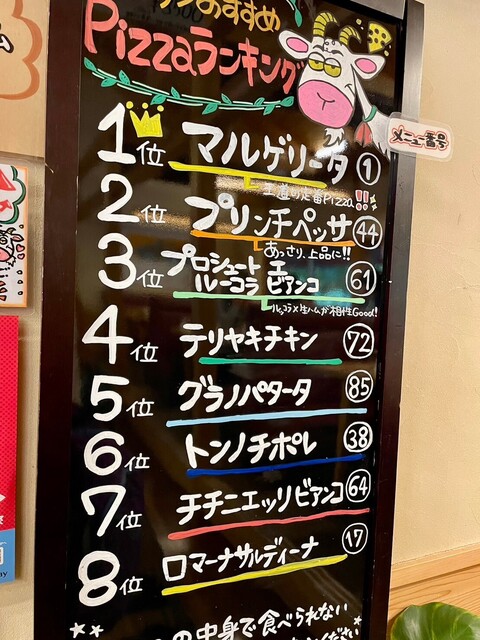 おすすめ
Pizzaランキング
メニュー番号
1位 マルゲリータ ①
王道の定番Pizza!!
2位 プリンチペッサ 44
あっさり、上品に!!
3位 プロシュート エ ルーコラ ビアンコ 61
ルッコラ×生ハムが相性Good!
4位 テリヤキチキン 72
5位 グラノパタータ 85
6位 トンノチポレ 38
7位 チチニエッリビアンコ 64
8位 ロマーナサルディーナ 17
の中身で食べられない